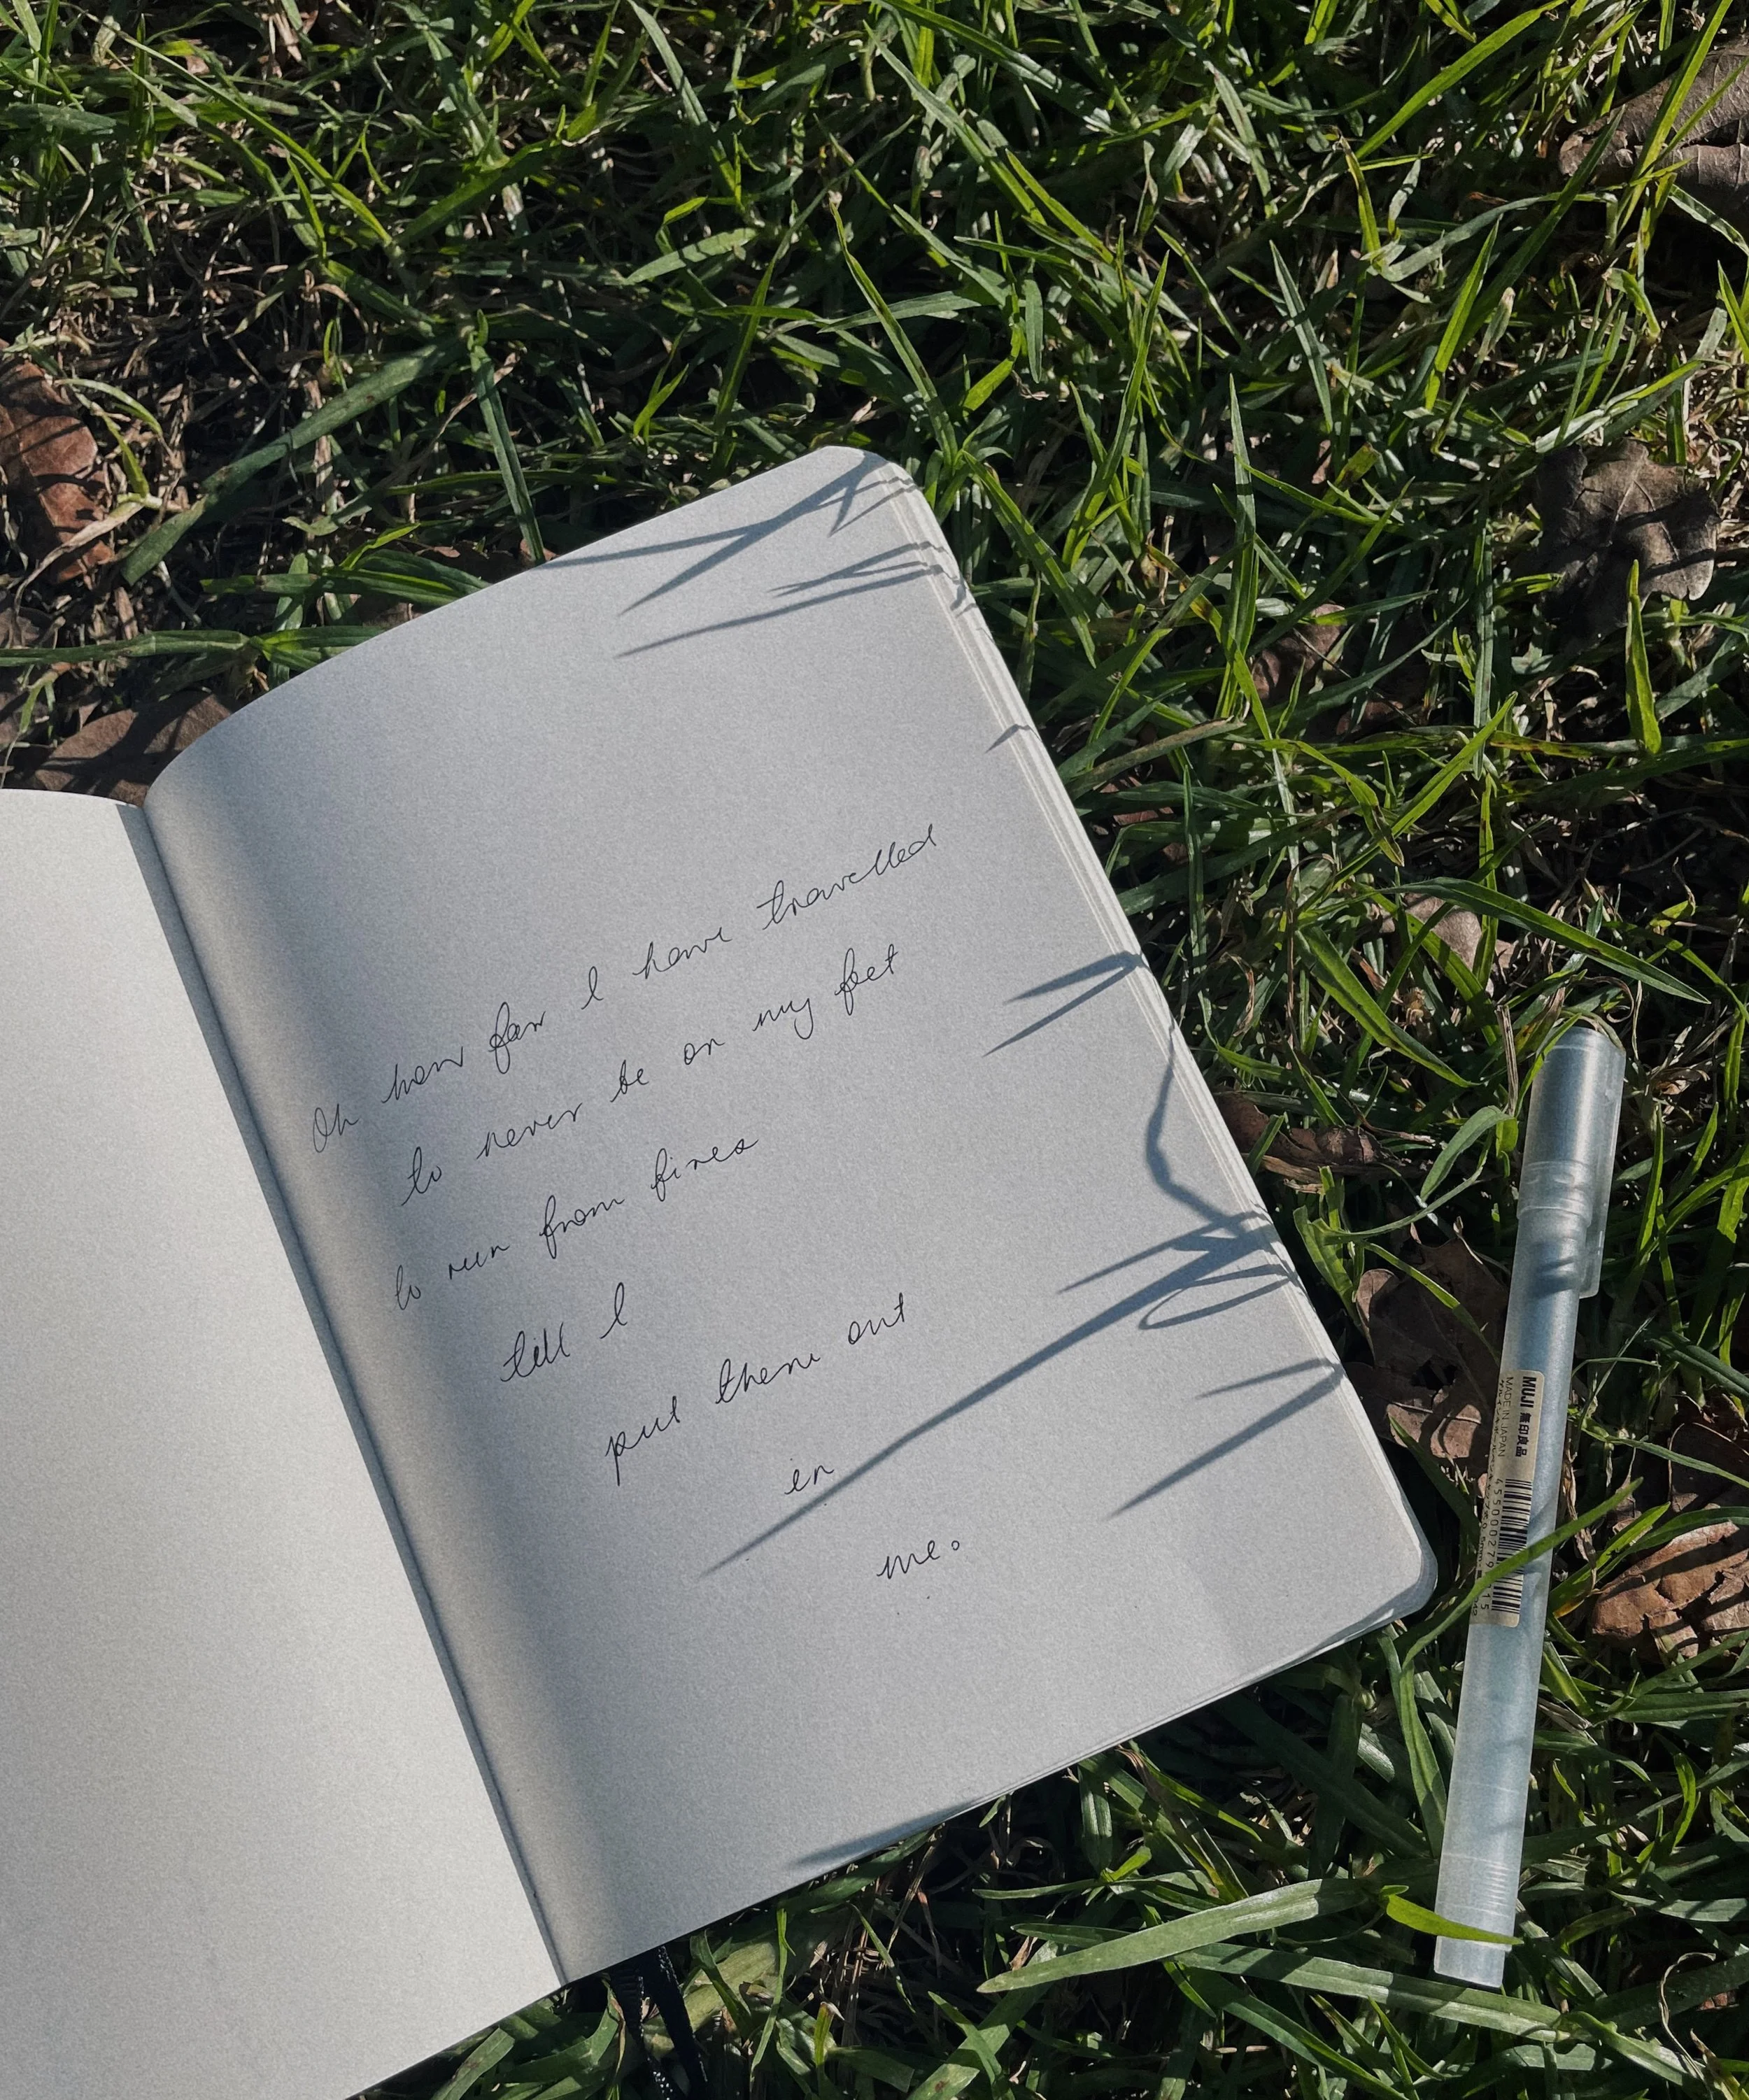 Oh how far I have travelled
to never be on my feet
to run from fires
till I
put them out
in
me.
MUJI 無印良品
MADE IN JAPAN